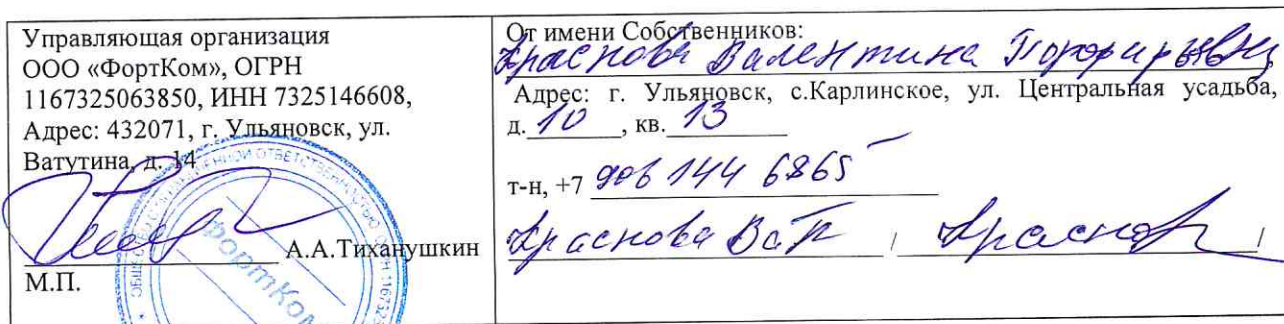 Управляющая организация
ООО «ФортКом», ОГРН
1167325063850, ИНН 7325146608,
Адрес: 432071, г. Ульяновск, ул.
Ватутина, д. 14
А.А.Тиханушкин
М.П.
ФортКом
От имени Собственников:
Краснова Валентина Порфирьевна
Адрес: г. Ульяновск, с.Карлинское, ул. Центральная усадьба,
д. 10, кв. 13
т-н, +7 906 144 6865
Краснова В.П. / Краснов /